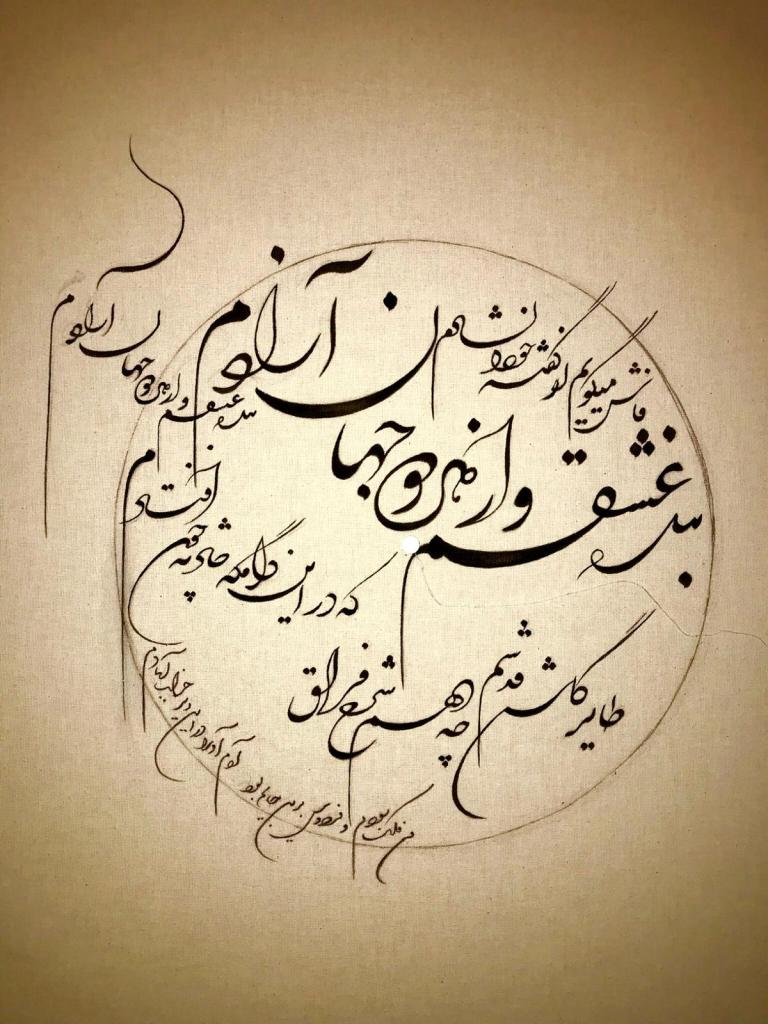 فاش میگویم و از گفته خود دلشادم
بنده عشقم و از هر دو جهان آزادم
بنده عشقم و از هر دو جهان آزادم
طایر گلشن قدسم چه دهم شرح فراق
که در این دامگه حادثه چون افتادم
من ملک بودم و فردوس برین جایم بود
آدم آورد در این دیر خراب آبادم